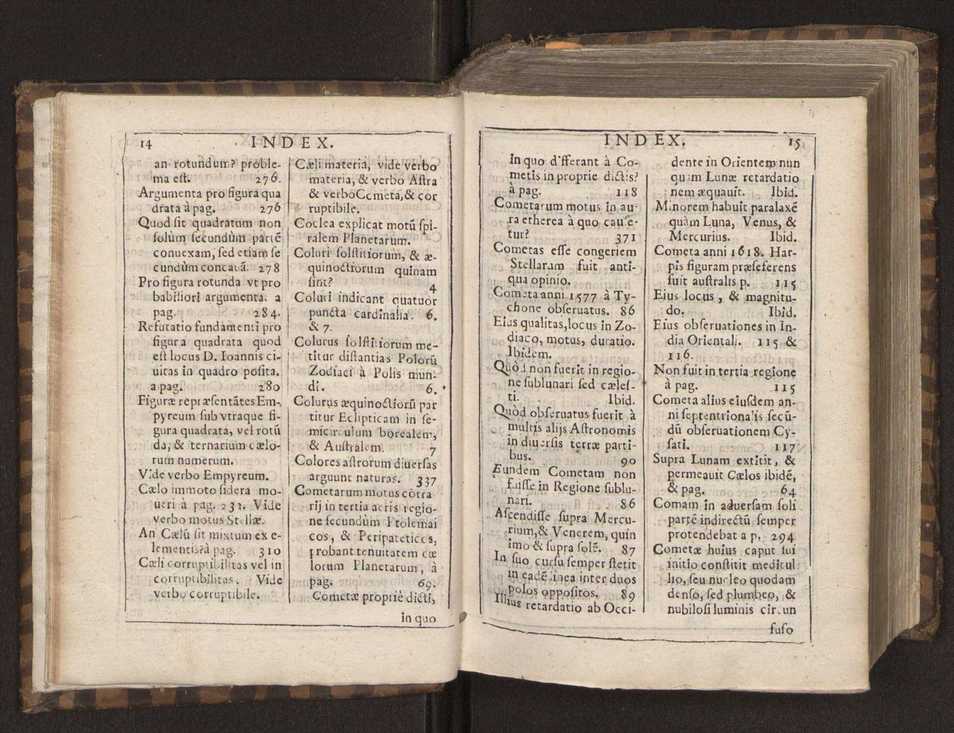 14 INDEX.
an rotundum? proble-
ma est. 276.
Argumenta pro figura qua
drata à pag. 276
Quod sit quadratum non
solùm secundùm partē
conuexam, sed etiam se
cundùm concauā. 278
Pro figura rotunda vt pro
babiliori argumenta. a
pag. 284.
Refutatio fundamenti pro
figura quadrata quod
est locus D. Ioannis ci-
uitas in quadro posita.
a pag. 280
Figuræ repræsentātes Em-
pyreum sub vtraque fi-
gura quadrata, vel rotū
da, & ternarium cælo-
rum numerum.
Vide verbo Empyreum.
Cælo immoto sidera mo-
ueri à pag. 231. Vide
verbo motus Stellæ.
An Cælū sit mixtum ex e-
lementis? à pag. 310
Cæli corruptibilitas vel in
corruptibilitas. Vide
verbo corruptibile.
Cæli materia, vide verbo
materia, & verbo Astra
& verbo Cometa, & cor
ruptibile.
Coclea explicat motū spi-
ralem Planetarum.
Coluri solstitiorum, & æ-
quinoctiorum quinam
sint? 4
Coluri indicant quatuor
puncta cardinalia. 6.
& 7.
Colurus solstitiorum me-
titur distantias Polorū
Zodiaci à Polis mun-
di. 6.
Colurus æquinoctiorū par
titur Eclipticam in se-
micirculum borealem,
& Australem. 7
Colores astrorum diuersas
arguunt naturas. 337
Cometarum motus cōtra
rij in tertia aeris regio-
ne secundùm Ptolemai
cos, & Peripateticos,
probant tenuitatem cæ
lorum Planetarum, à
pag. 69.
Cometæ propriè dicti,
in quo
INDEX. 15
In quo differant à Co-
metis in proprie dictis?
à pag. 118
Cometarum motus in au-
ra etherea à quo cause-
tur? 371
Cometas esse congeriem
Stellaram fuit anti-
qua opinio.
Cometa anni 1577 à Ty-
chone obseruatus. 86
Eius qualitas, locus in Zo-
diaco, motus, duratio.
Ibidem.
Quòd non fuerit in regio-
ne sublunari sed cæles-
ti. Ibid.
Quòd obseruatus fuerit à
multis alijs Astronomis
in diuersis terræ parti-
bus. 90
Eundem Cometam non
fuisse in Regione sublu-
nari. 86
Ascendisse supra Mercu-
rium, & Venerem, quin
imo & supra solē. 87
In suo cursu semper stetit
in eadē linea inter duos
polos oppositos. 89
Illius retardatio ab Occi-
dente in Orientem nun
quam Lunæ retardatio
nem æquauit. Ibid.
Minorem habuit paralaxē
quàm Luna, Venus, &
Mercurius. Ibid.
Cometa anni 1618. Har-
pis figuram præseferens
fuit australis p. 115
Eius locus, & magnitu-
do. Ibid.
Eius obseruationes in In-
dia Orientali. 115 &
116.
Non fuit in tertia regione
à pag. 115
Cometa alius eiusdem an-
ni septentrionalis secū-
dū obseruationem Cy-
sati. 117
Supra Lunam extitit, &
permeauit Cælos ibidē,
& pag. 64
Comam in aduersam soli
partē indirectū semper
protendebat a p. 294
Cometæ huius caput sui
initio constitit meditul
lio, seu nucleo quodam
denso, sed plumbeo, &
nubilosi luminis circun
fuso